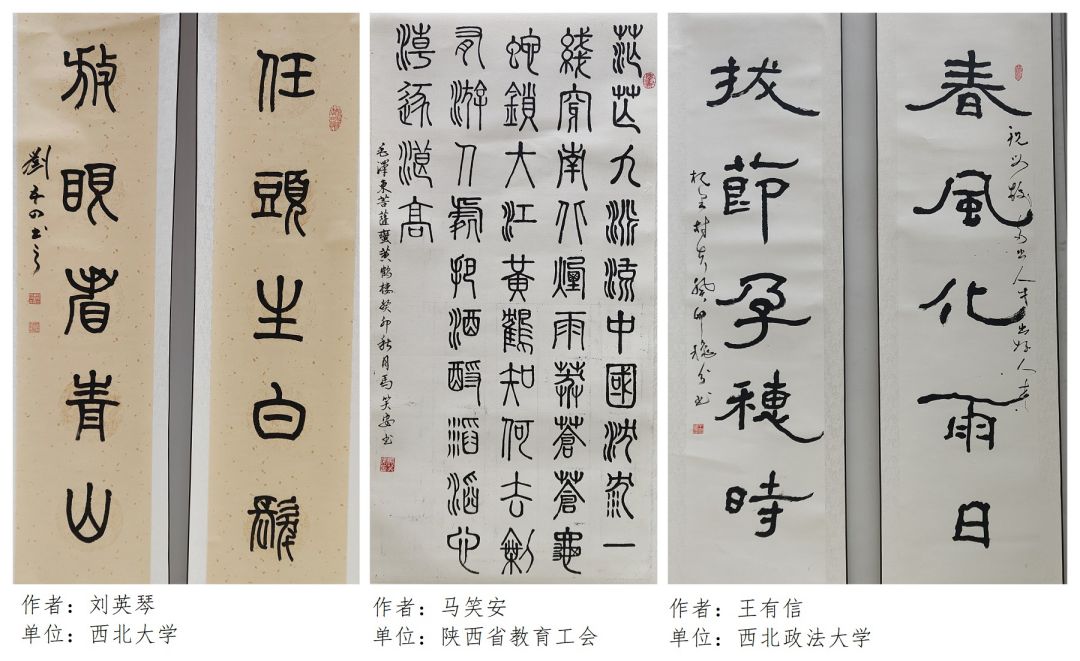 任頭生白髮
放眼看青山
劉
茫茫九派流中國沈沈一
綫穿南北煙雨莽蒼蒼龜
蛇鎖大江黃鶴知何去剩
有游人處把酒酹滔滔心
潮逐浪高
毛澤東菩薩蠻黃鶴樓癸卯秋月馬笑安书
春風化雨日
出人才出好人
拔節孕穗時
作者：刘英琴
单位：西北大学
作者：马笑安
单位：陕西省教育工会
作者：王有信
单位：西北政法大学